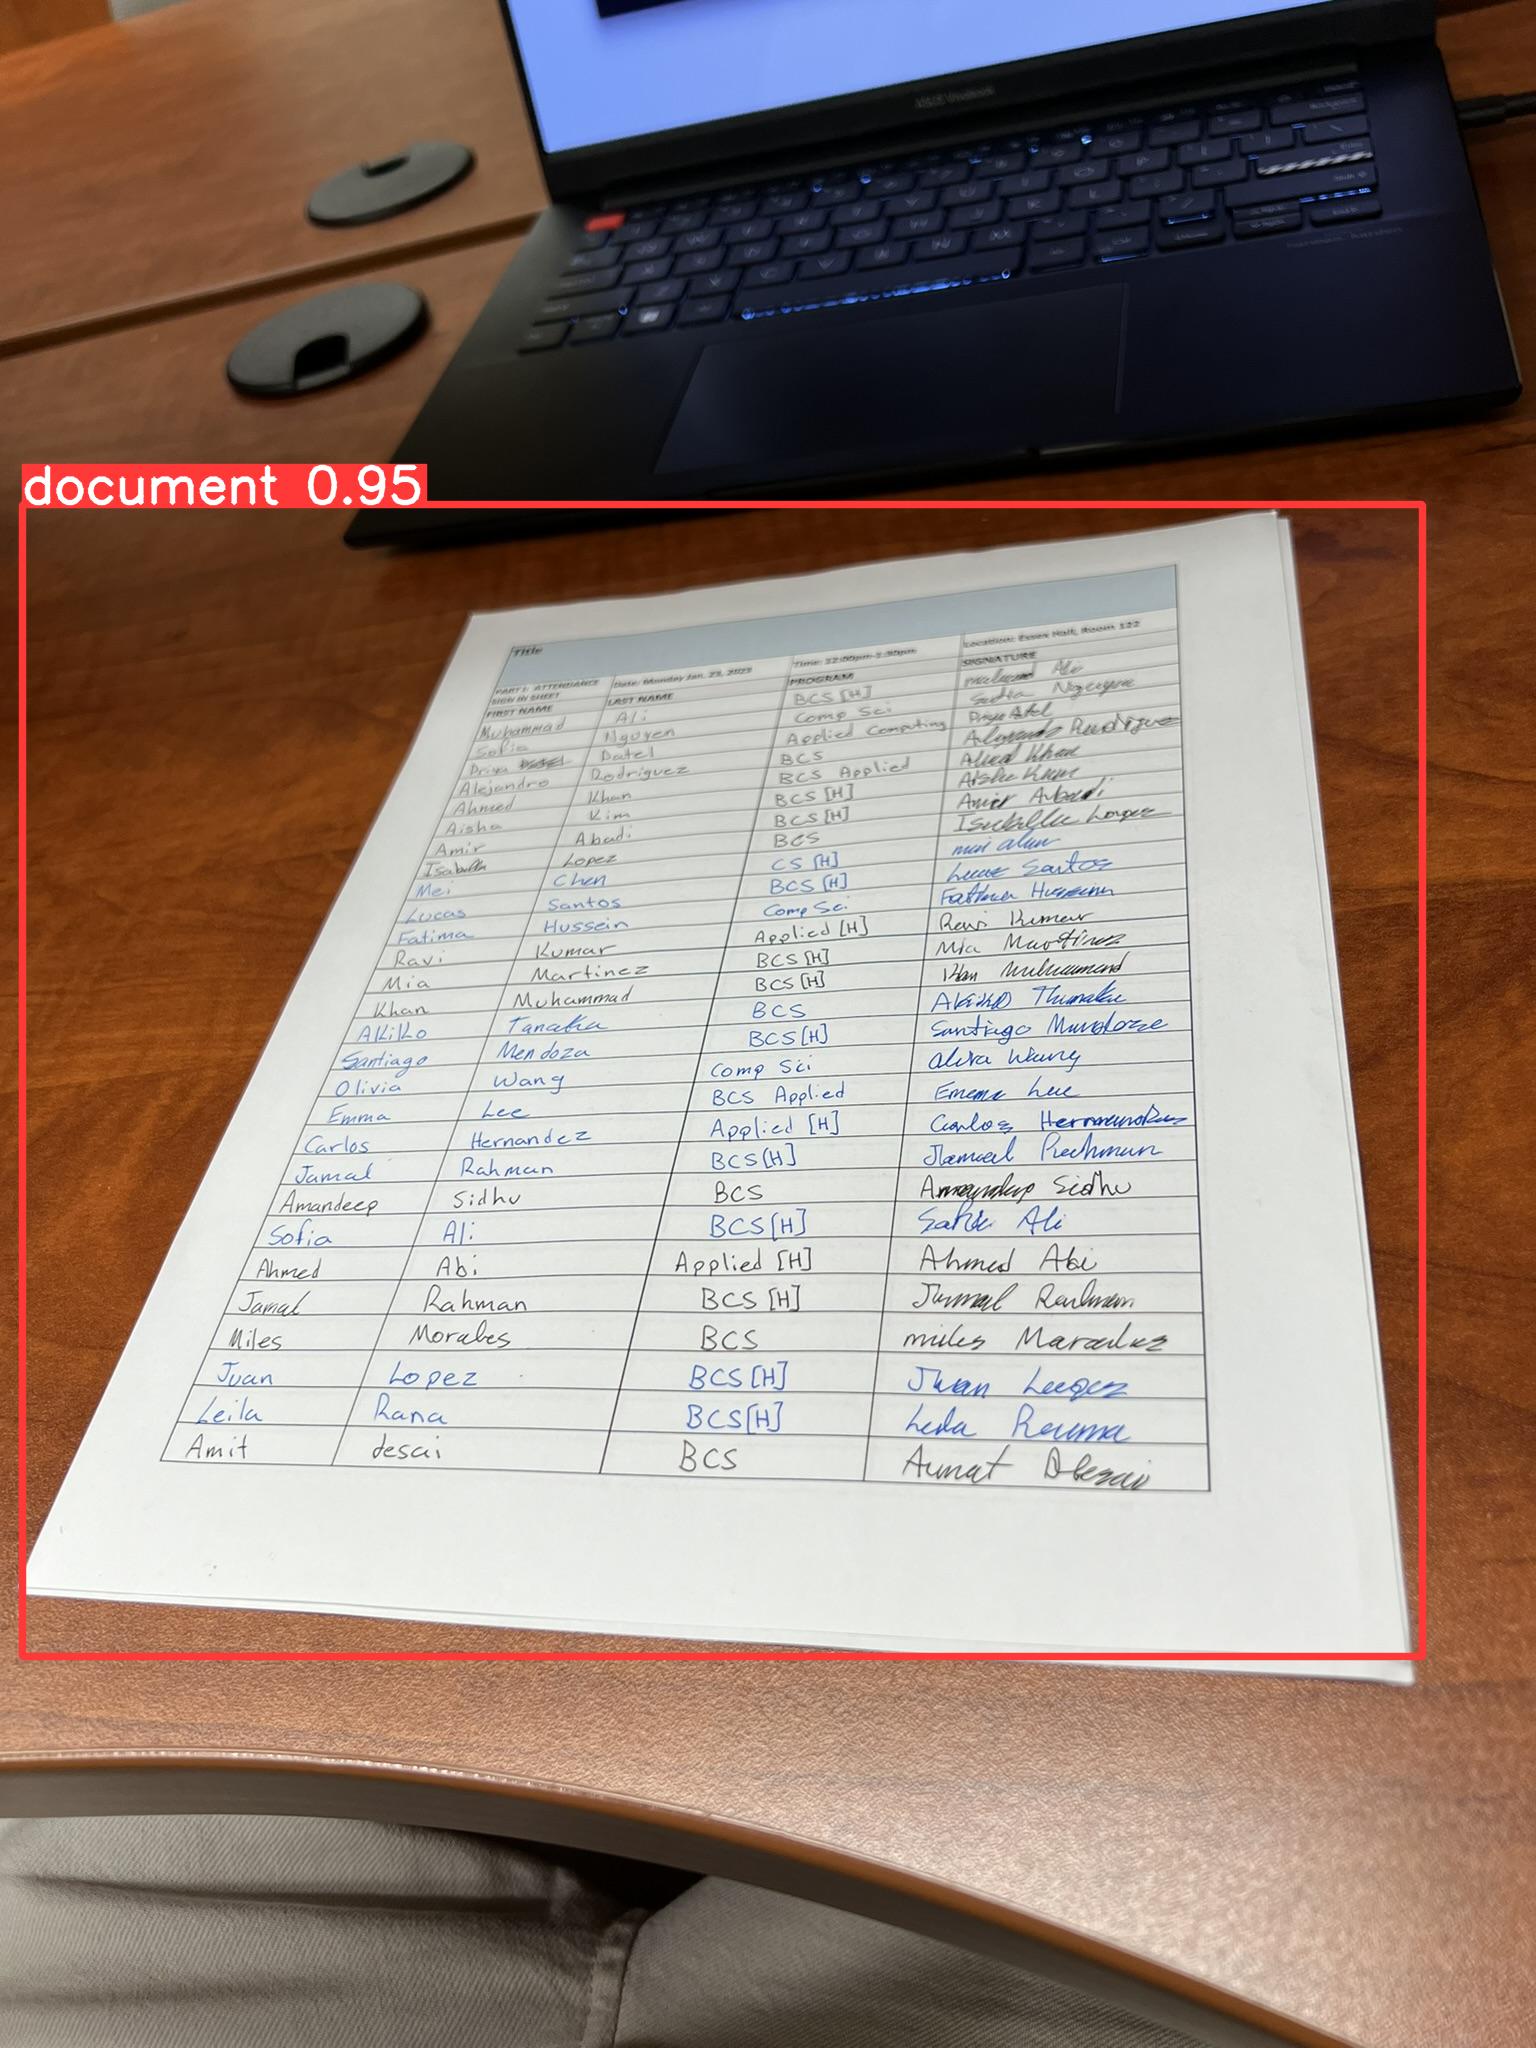 ASUS Vivobook
document 0.95
Title
PART I: ATTENDANCE SIGN IN SHEET Date: Monday Jan. 23, 2023 Time: 12:00pm-1:30pm Location: Essex Hall, Room 122
FIRST NAME LAST NAME PROGRAM SIGNATURE
Muhammad Ali BCS [H] Ali
Sofia Nguyen Comp Sci Nguyen
Priya Patel Applied Computing
Alejandro Rodriguez BCS Alejandro Rodriguez
Ahmed Khan BCS Applied Ahmed Khan
Aisha Kim BCS [H] Aisha Kim
Amir Abadi BCS [H] Amir Abadi
Isabella Lopez BCS Isabella Lopez
Mei Chen CS [H]
Lucas Santos BCS [H] Lucas Santos
Fatima Hussein Comp Sci Fatima Hussein
Ravi Kumar Applied [H] Ravi Kumar
Mia Martinez BCS [H] Mia Martinez
Khan Muhammad BCS [H] Khan Muhammad
AKiKo Tanaka BCS
Santiago Mendoza BCS [H] Santiago
Olivia Wang Comp Sci Wang
Emma Lee BCS Applied Emma Lee
Carlos Hernandez Applied [H] Carlos Hernandez
Jamal Rahman BCS [H] Jamal
Amandeep Sidhu BCS Amandeep Sidhu
Sofia Ali BCS [H] Ali
Ahmed Abi Applied [H] Ahmed Abi
Jamal Rahman BCS [H] Jamal Rahman
Miles Morales BCS miles
Juan Lopez BCS [H] Juan
Leila Rana BCS [H]
Amit desai BCS